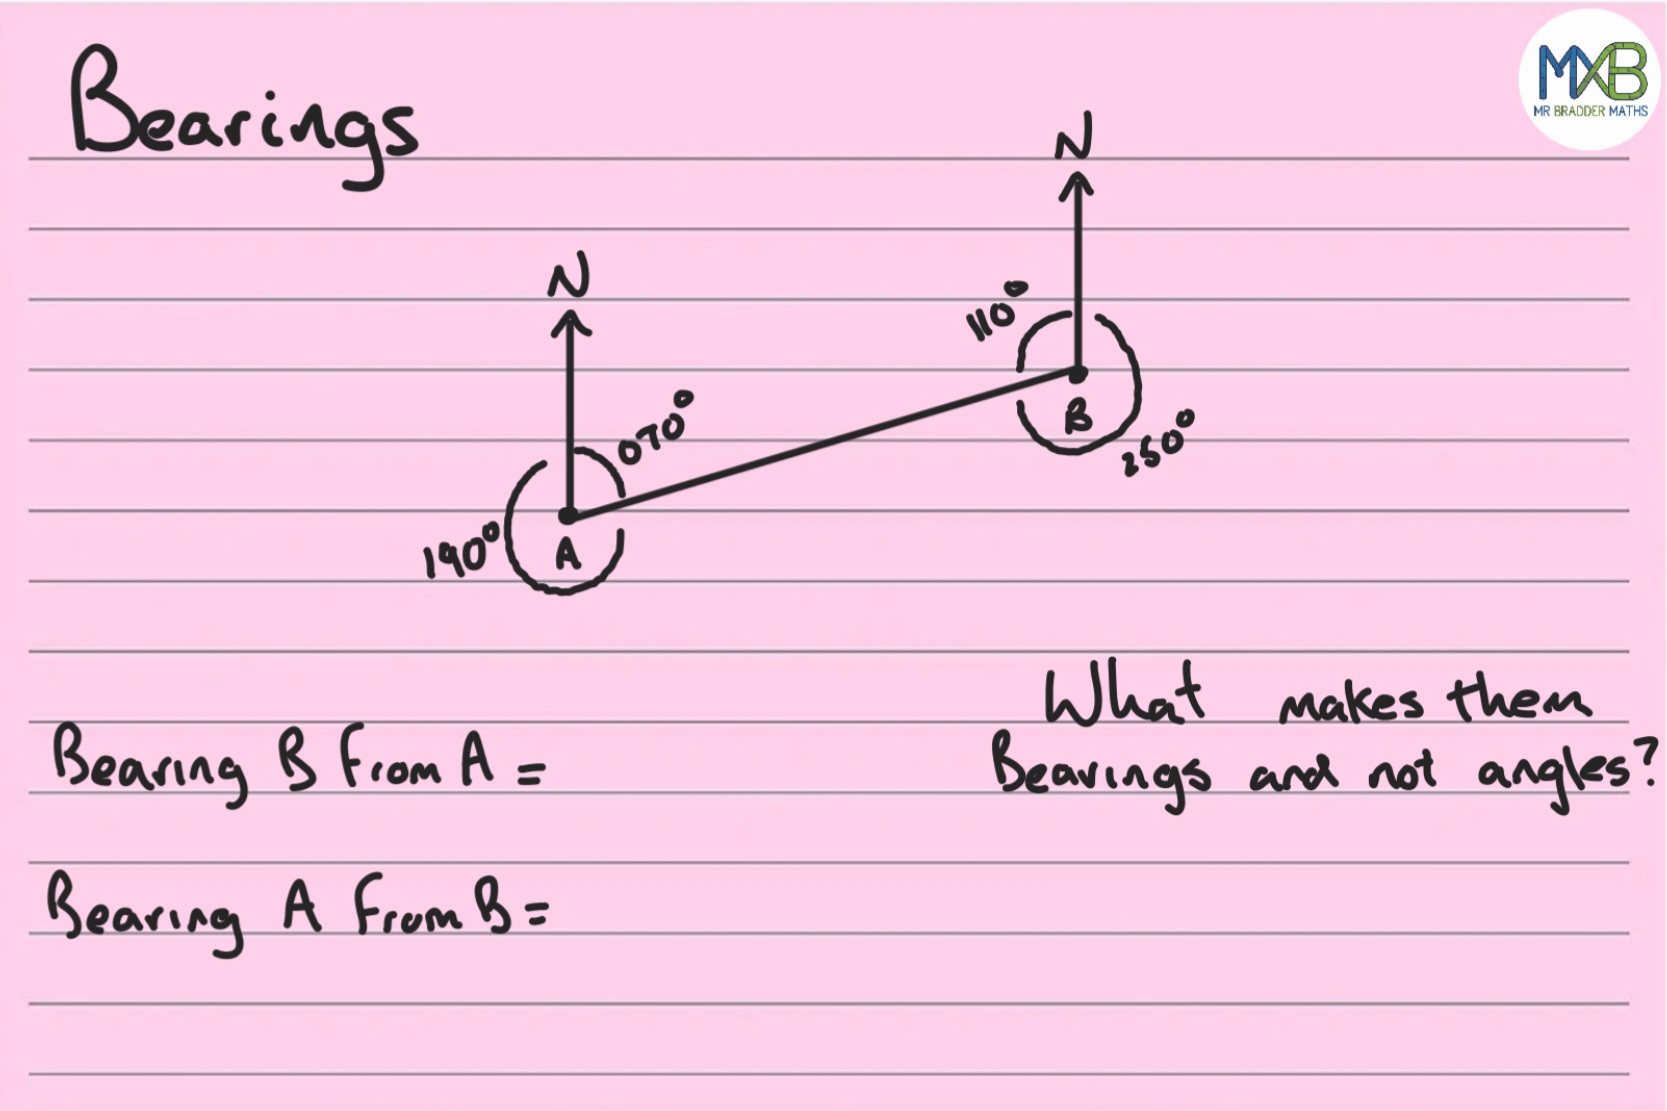 Bearings
MXB
MR BRADDER MATHS
N
N
110°
070°
B
250°
190°
A
What makes them
Bearing B from A =
Bearings and not angles?
Bearing A from B =